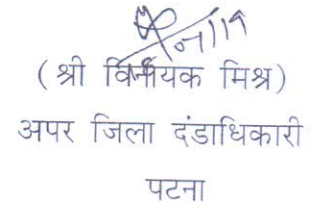 (श्री विनायक मिश्र)
अपर जिला दंडाधिकारी
पटना